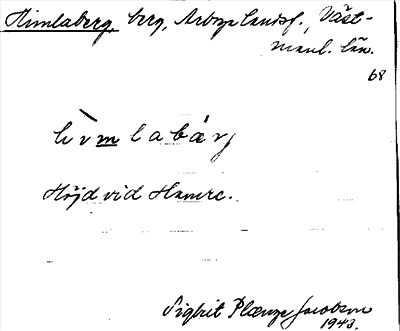 Himlaberg, berg, Arboga landsf., Väst-
manl. län.
68
hìm labár̨
Höjd vid Hamre.
Sigbrit Plænge Jacobson
1943.